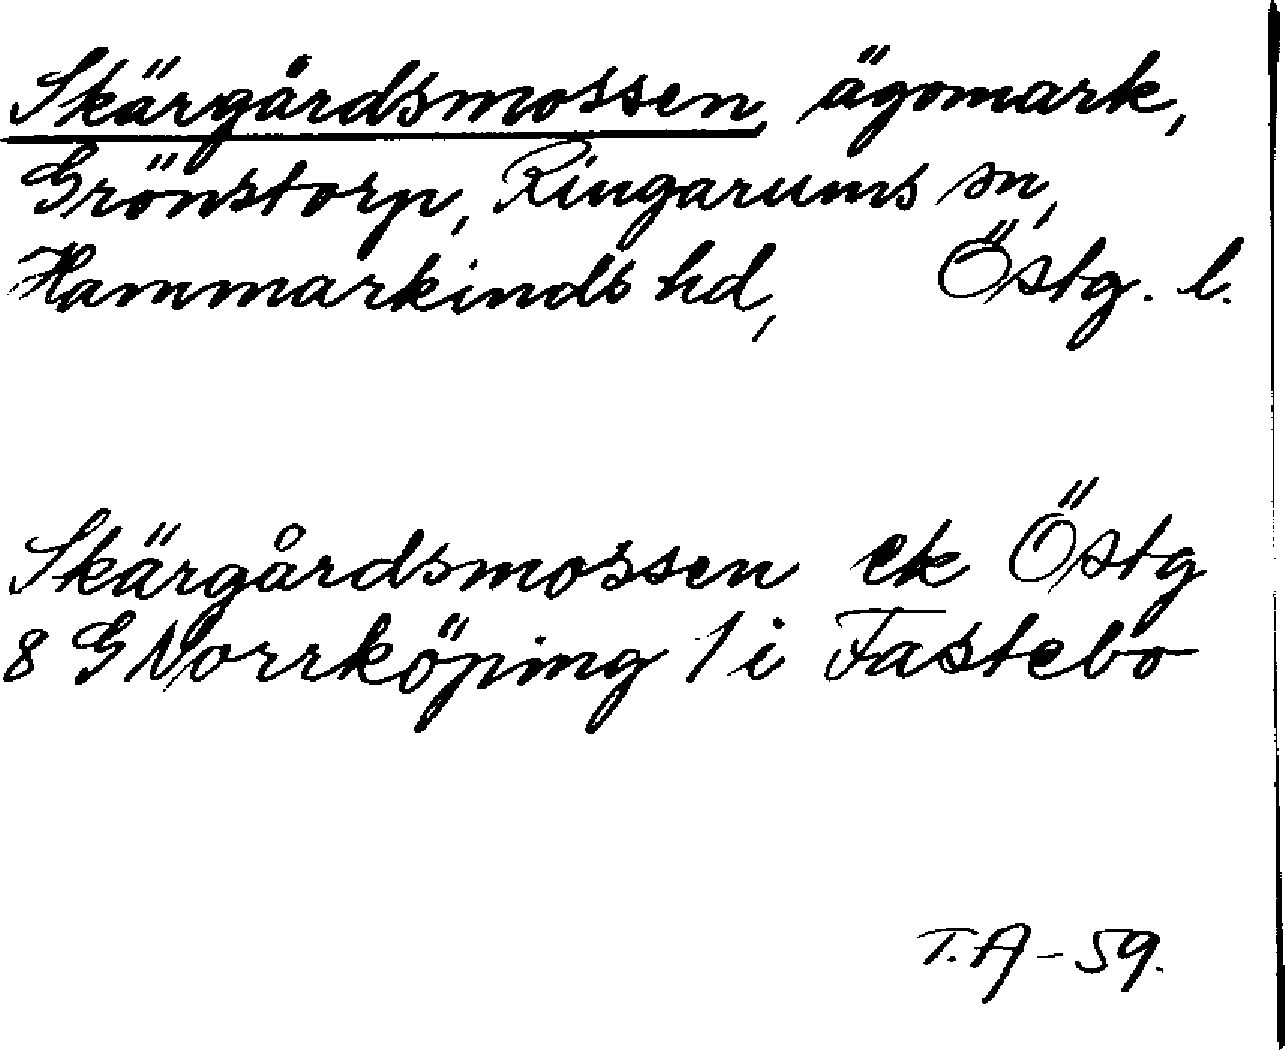 Skärgårdsmossen, ägomark,
Grönstorp, Ringarums sn,
Hammarkinds hd, Östg. l.
Skärgårdsmossen ek Östg
8 G Norrköping 1 i Fastebo
T.A - 59.